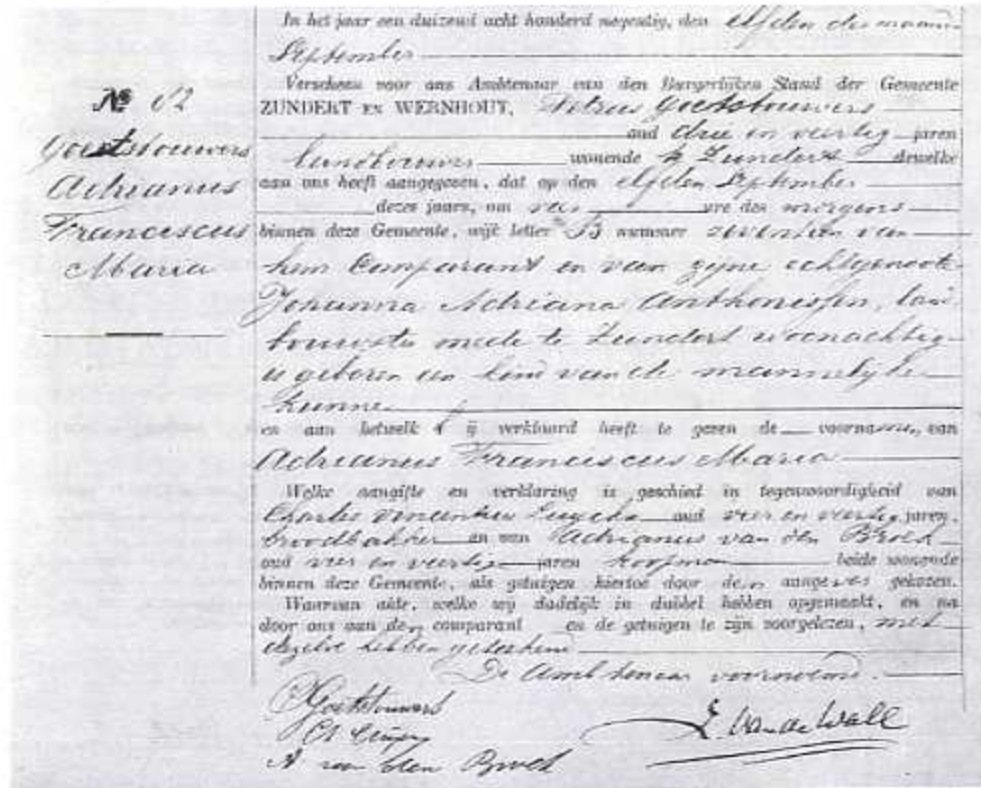 In het jaar een duizend acht honderd negentig, den elfden der maand
September
Verscheen voor ons Ambtenaar van den Burgerlijken Stand der Gemeente
ZUNDERT EN WERNHOUT, Petrus Goetstouwers
oud drie en veertig jaren
landbouwer wonende te Zundert dewelke
aan ons heeft aangegeven, dat op den elfden September
dezes jaars, om ure des morgens
binnen deze Gemeente, wijk letter B nummer zeventien van
hem Comparant en van zijne echtgenoote
Johanna Adriana Anthonissen, lan
bouwster mede te Zundert woonachtig
is geboren een kind van de mannelijke
kunne
en aan hetwelk hij verklaard heeft te geven de voorname, van
Adrianus Franciscus Maria
Welke aangifte en verklaring is geschied in tegenwoordigheid van
Charles Vincentius oud vier en veertig jaren,
broodbakker en van Adrianus van den Broek
oud vier en veertig jaren koopman beide wonende
binnen deze Gemeente, als getuigen hiertoe door den aangever gekozen.
Waarvan akte, welke wij dadelijk in dubbel hebben opgemaakt, en na
door ons aan den comparant en de getuigen te zijn voorgelezen, met
dezelve hebben geteekend
De Ambtenaar voornoemd.
№ 62
Goetstouwers
Adrianus
Franciscus
Maria
P Goetstouwers
Ch
A van den Broek
Van de Wall